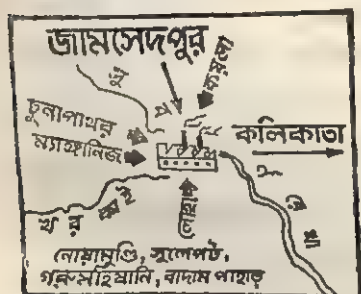 জামসেদপুর
সু
ব
কয়লা
চুনাপাথর
ম্যাঙ্গানিজ
কলিকাতা
রে
খা
খ র কা ই
লোহা
নোয়ামুণ্ডি, সুলেপট,
গরুমহিষানি, বাদাম পাহাড়